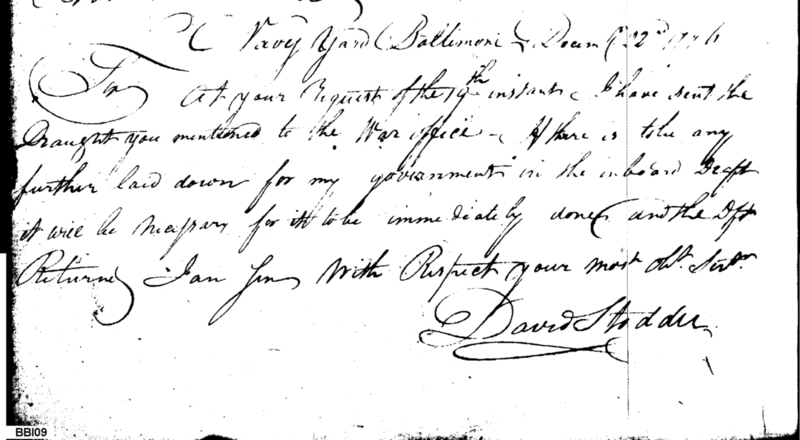 Navy Yard Baltimore Decem 22nd 1796
Sir At your Request of the 19th instant I have sent the
Draught you mentioned to the War office - If there is tobe any
further laid down for my government in the inboard Draft
it will be Necessary for it to be immediately done and the Dft
Returned I am Sir With Respect your most obt. Servn
David Stodder
BBI09